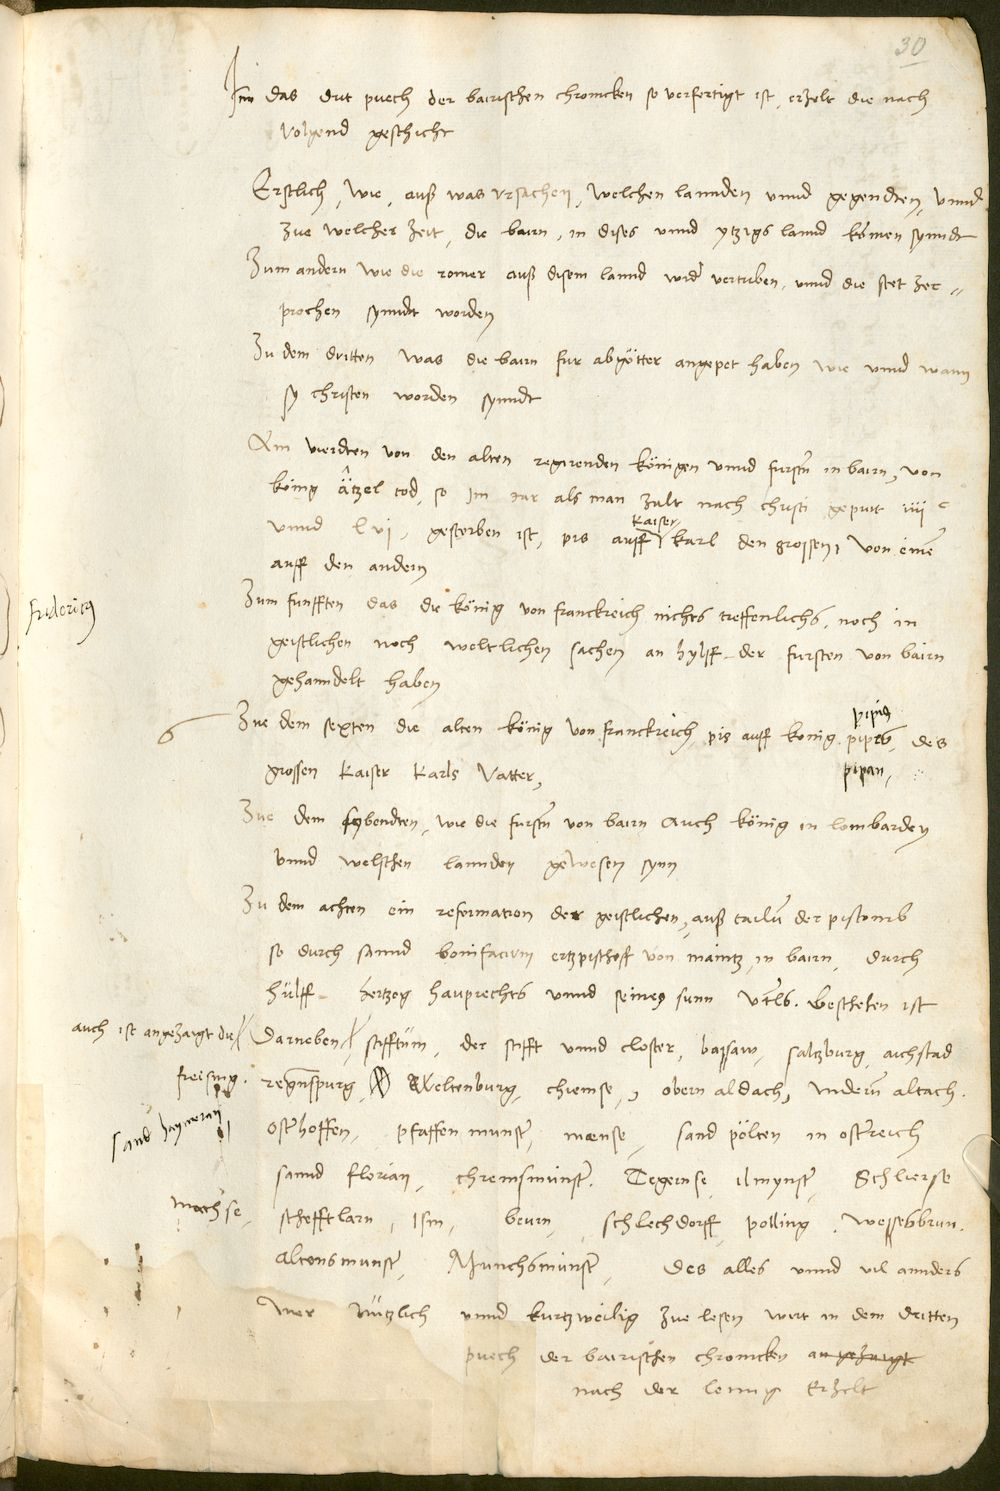 30
Im das drit puech der bairischen chronicken so verfertigt ist, erzelt die nach
volgend geschicht
Erstlich, wie, auß was vrsachen, welchen lannden vnnd gegendten, vnnd
zue welcher zeit, die bairn, in dises vnnd ytzigs lannd komen synndt
Zum andern wie die romer auß disem lannd wider vertriben, vnnd die stet zer
prochen synndt worden
Zu dem dritten was die bairn fur abgötter angepet haben wie vnnd wann
sy christen worden synndt
Am vierdten von den alten regirenden königen vnnd fursten in bairn, von
könig ätzel tod, so im iar als man zalt nach christi gepurt iiii c
vnnd lvi, gestorben ist, pis auff kaiser karl den grossen, von einem
auff den andern
Zum funfften das die könig von franckreich nichts treffenlichs, noch in
geistlichen noch weltlichen sachen an hylff der fursten von bairn
gehanndelt haben
6
Zue dem sexten die alten könig von franckreich, pis auff konig pipis, des
pipan,
grossen kaiser karls vatter,
Zue dem sybendten, wie die fursten von bairn auch könig in lombardey
vnnd welschen lannden gewesen synn
Zu dem achten ein reformation der geistlichen, auß der pistomb
so durch sannd bonifacium ertzpischoff von maintz, in bairn, durch
hülff hertzog hauprechts vnnd seines sunn beschehen ist
auch ist angezaigt die
Darneben stifftüm, der stifft vnnd closter, bassaw, saltzburg, aichstad
freising.
regenspurg, Weltenburg, chiemse, obern aldach, nidern altach.
sand haymeran
osterhoffen, pfaffen munster, mænse, sand pölten in osterreich
sannd florian, chremsmünster. Tegernse, ilmynster, Schlierse
mæchse,
schefftlarn, Isin, beurn, schlechdorff, polling, wessesbrun.
altensmunster, Munchsmünster, des alles vnnd vil annders
mer nützlich vnnd kurtzweilig zue lesen wirt in dem dritten
puech der bairischen chronicken angezaigt
nach der leng erzelt